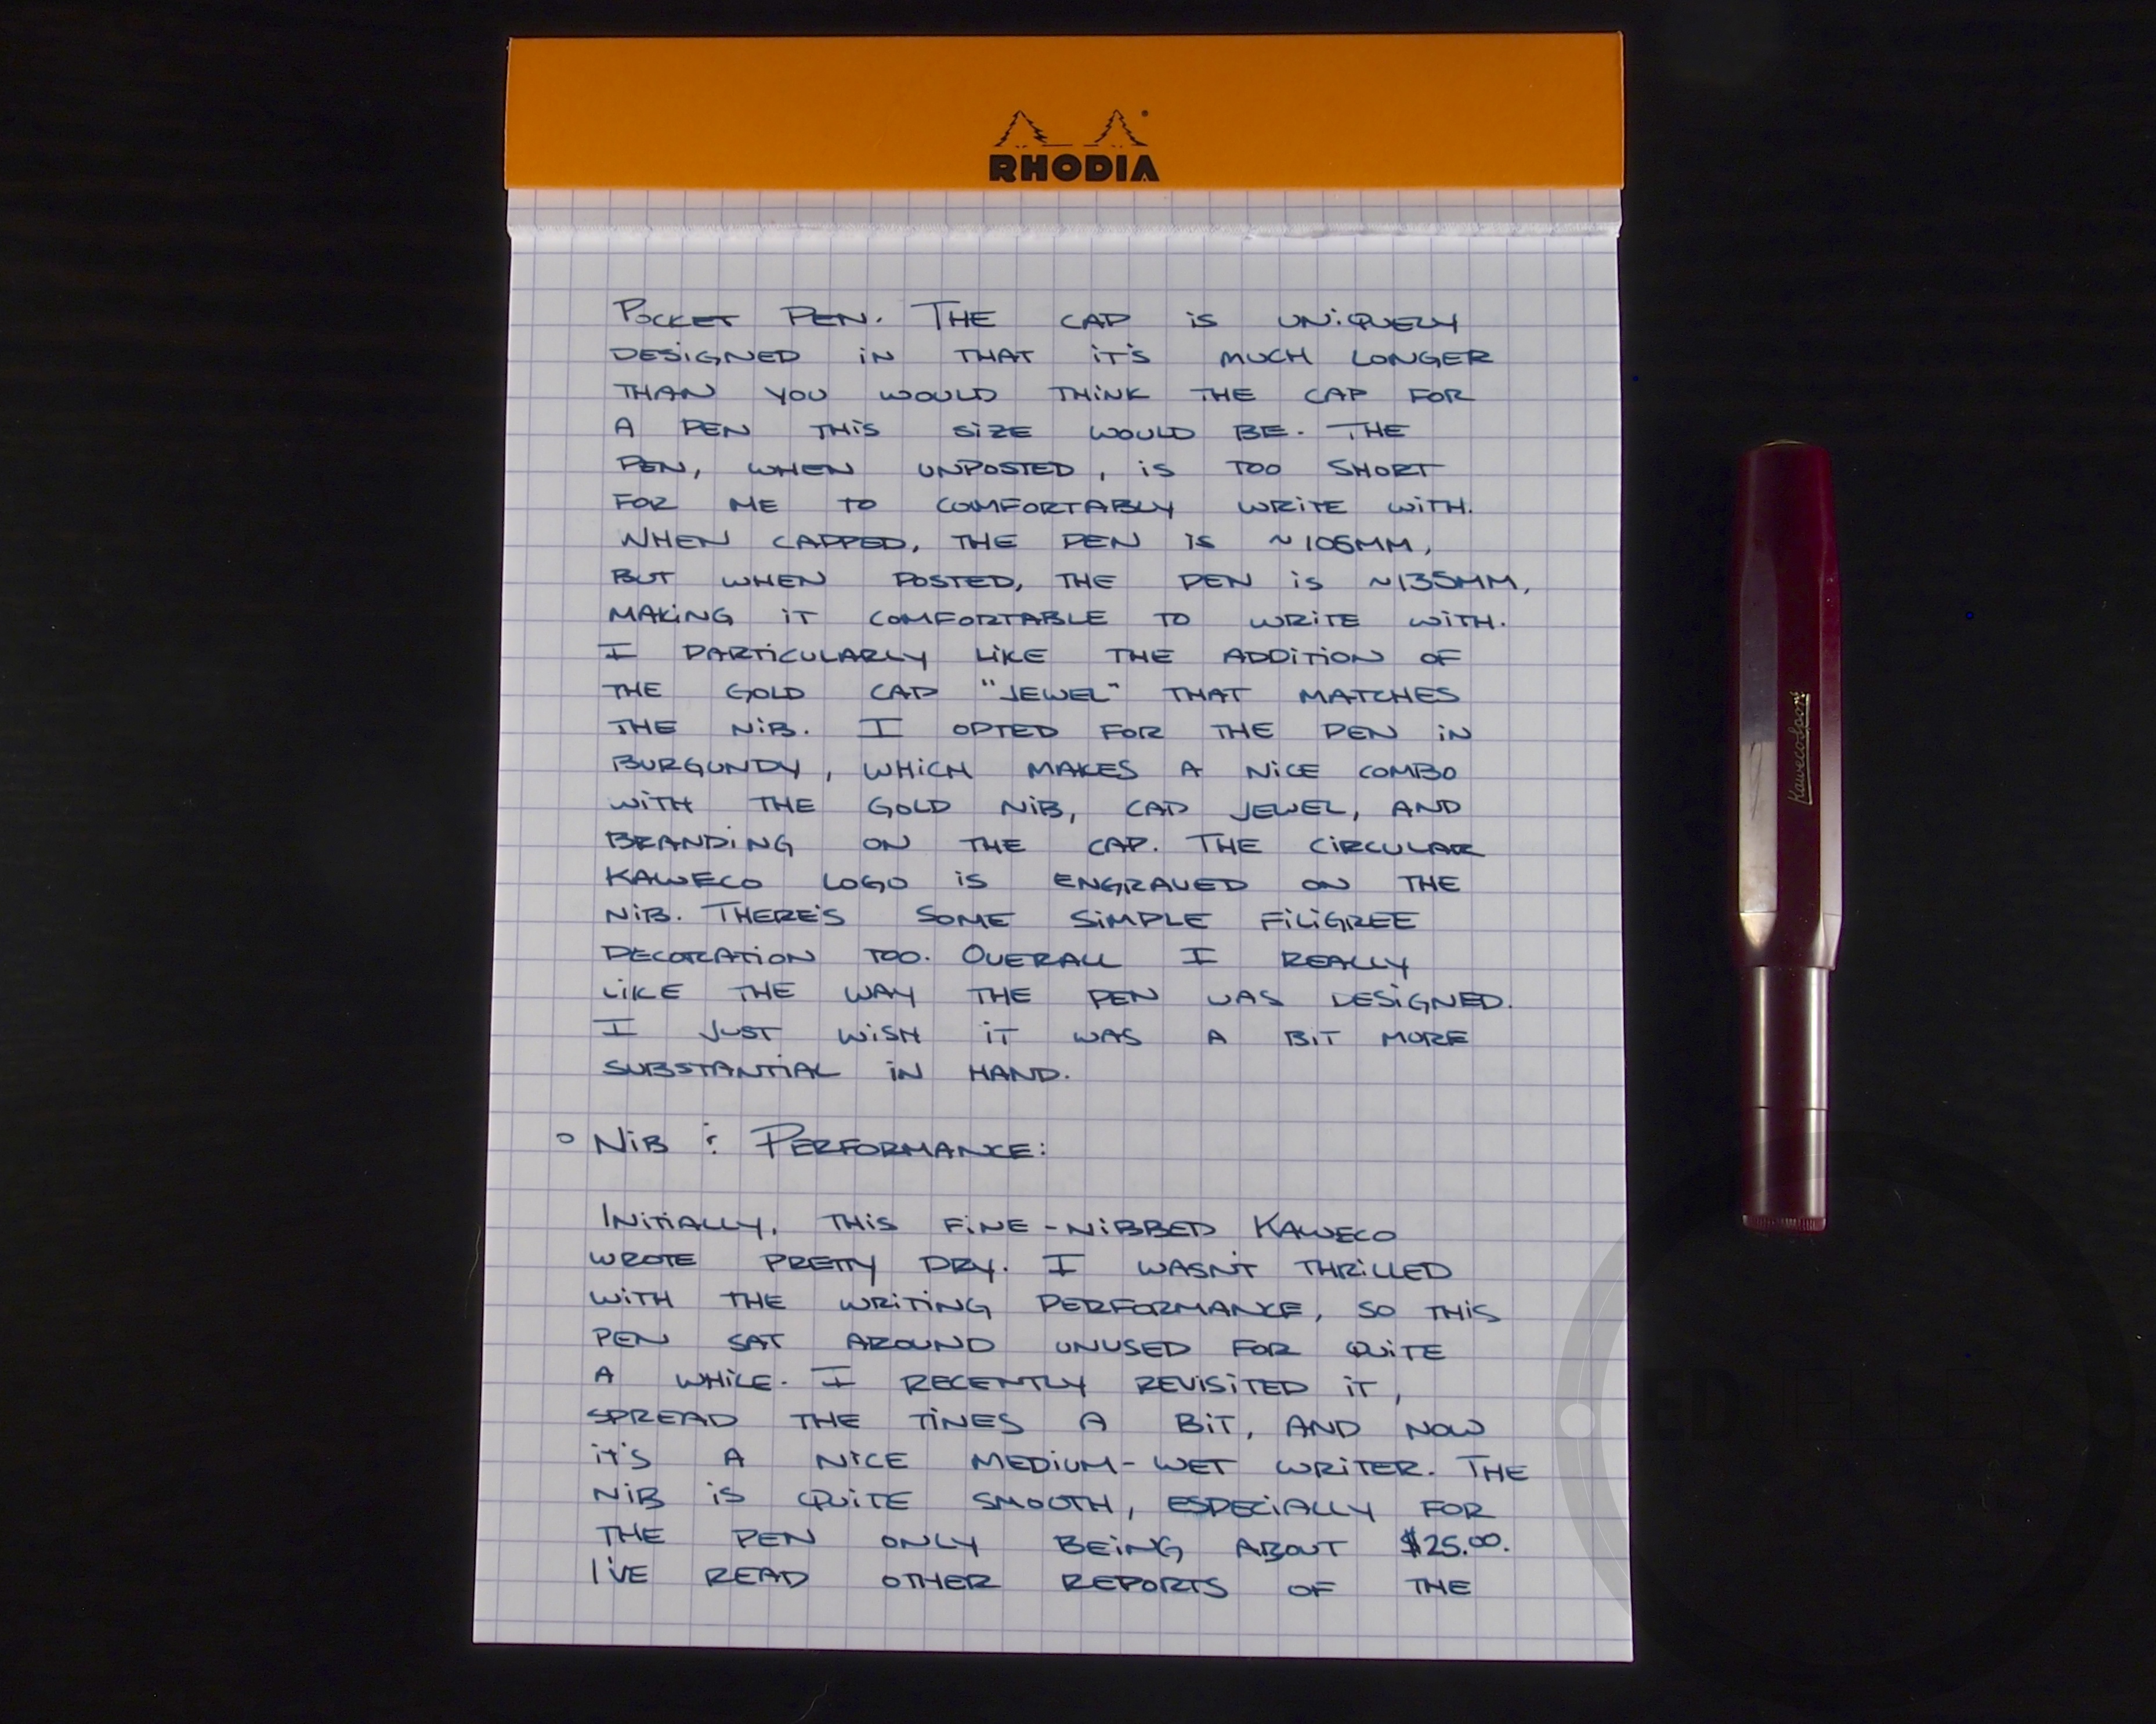 RHODIA
POCKET PEN. THE CAP IS UNIQUELY
DESIGNED IN THAT IT'S MUCH LONGER
THAN YOU WOULD THINK THE CAP FOR
A PEN THIS SIZE WOULD BE. THE
PEN, WHEN UNPOSTED, IS TOO SHORT
FOR ME TO COMFORTABLY WRITE WITH.
WHEN CAPPED, THE PEN IS ~105MM,
BUT WHEN POSTED, THE PEN IS ~135MM,
MAKING IT COMFORTABLE TO WRITE WITH.
I PARTICULARLY LIKE THE ADDITION OF
THE GOLD CAP "JEWEL" THAT MATCHES
THE NIB. I OPTED FOR THE PEN IN
BURGUNDY, WHICH MAKES A NICE COMBO
WITH THE GOLD NIB, CAP JEWEL, AND
BRANDING ON THE CAP. THE CIRCULAR
KAWECO LOGO IS ENGRAVED ON THE
NIB. THERE'S SOME SIMPLE FILIGREE
DECORATION TOO. OVERALL I REALLY
LIKE THE WAY THE PEN WAS DESIGNED.
I JUST WISH IT WAS A BIT MORE
SUBSTANTIAL IN HAND.
○ NIB & PERFORMANCE:
INITIALLY, THIS FINE-NIBBED KAWECO
WROTE PRETTY DRY. I WASN'T THRILLED
WITH THE WRITING PERFORMANCE, SO THIS
PEN SAT AROUND UNUSED FOR QUITE
A WHILE. I RECENTLY REVISITED IT,
SPREAD THE TINES A BIT, AND NOW
IT'S A NICE MEDIUM-WET WRITER. THE
NIB IS QUITE SMOOTH, ESPECIALLY FOR
THE PEN ONLY BEING ABOUT $25.00.
I'VE READ OTHER REPORTS OF THE
Kaweco Sport